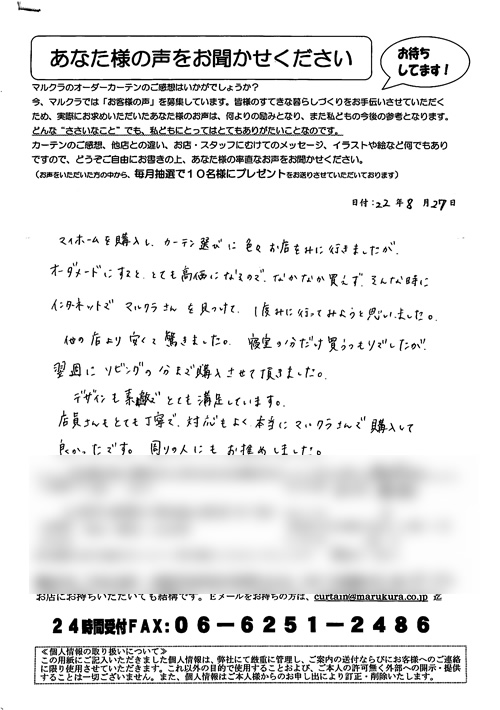 あなた様の声をお聞かせください
お待ち
してます!
マルクラのオーダーカーテンのご感想はいかがでしょうか?
今、マルクラでは「お客様の声」を募集しています。皆様のすてきな暮らしづくりをお手伝いさせていただく
ため、実際にお求めいただいたあなた様のお声は、何よりの励みとなり、また私どもの今後の参考となります。
どんな“ささいなこと”でも、私どもにとってはとてもありがたいことなのです。
カーテンのご感想、他店との違い、お店・スタッフにむけてのメッセージ、イラストや絵など何でもあり
ですので、どうぞご自由にお書きの上、あなた様の率直なお声をお聞かせください。
(お声をいただいた方の中から、毎月抽選で10名様にプレゼントをお送りさせていただいております)
日付:22年8月27日
マイホームを購入し、カーテン選びに色々お店をみに行きましたが、
オーダーメードにすると、とても高価になるので、なかなか買えず、そんな時に
インターネットでマルクラさんを見つけて、1度みに行ってみようと思いました。
他の店より安くて驚きました。寝室の分だけ買うつもりでしたが、
翌週にリビングの分まで購入させて頂きました。
デザインも素敵でとても満足しています。
店員さんもとても丁寧で、対応もよく、本当にマルクラさんで購入して
良かったです。周りの人にもお推めしました。
お店にお持ちいただいても結構です。Eメールをお持ちの方は、curtain@marukura.co.jp 迄
24時間受付FAX:06-6251-2486
≪個人情報の取り扱いについて≫
この用紙にご記入いただきました個人情報は、弊社にて厳重に管理し、ご案内の送付ならびにお客様へのご連絡
に限り使用させていただきます。これ以外の目的で使用することおよび、ご本人の許可無く外部への開示・提供
することは一切ございません。また、個人情報はご本人様からのお申し出により訂正・削除いたします。